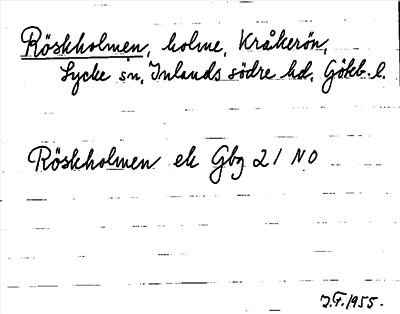 Röskholmen, holme, Kråkerön,
Lycke sn, Inlands södre hd, Gökb. l.
Röskholmen ek Gbg 21 NO
J.F. 1955.